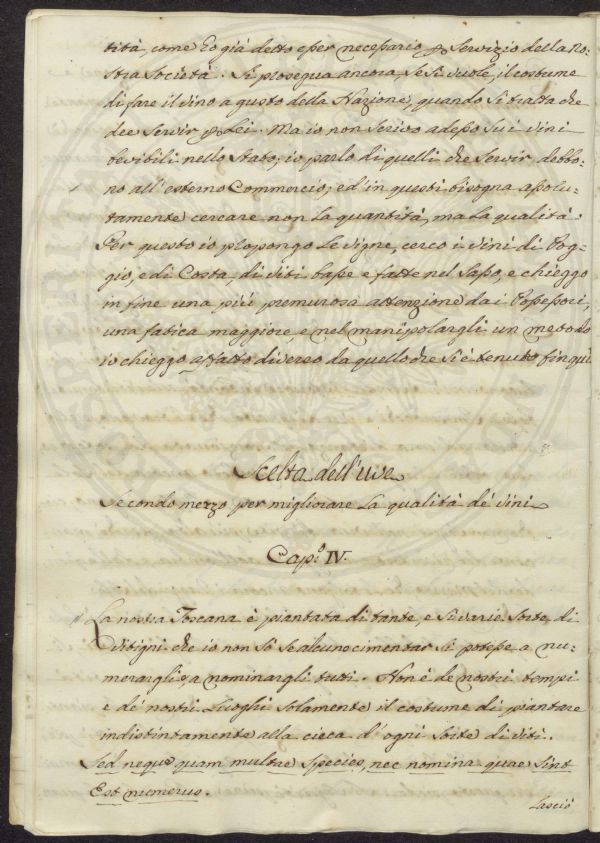 tità, come Eo già detto esser necessario p Servizio della No=
stra Società. Si prosegua ancora, se si vuole, il costume
di fare il vino a gusto della Nazione, quando si tratta che
dee Servir p Lei. Ma io non Scrivo adesso Su i vini
bevibili nello Stato; io parlo di quelli che Servir debbo=
no all'esterno Commercio; ed in questi bisogna assolu=
tamente cercare non la quantità, ma la qualità.
Per questo io propongo Le vigne, cerco i vini di Pog=
gio, e di Costa, di viti basse e fatte nel Sasso, e chieggo
in fine una più premurosa attenzione dai Possessori,
una fatica maggiore, e nel manipolargli un metodo
io chieggo affatto diverso da quello che si è tenuto fin qui.
Scelta dell'uve
Secondo mezzo per migliorare La qualità de' vini
Cap:º IV.
La nostra Toscana è piantata di tante, e sì varie Sorte di
Vitigni che io non Sò Se alcuno cimentar si potesse a nu=
merargli, a nominargli tutti. Non è de nostri tempi
e de' nostri Luoghi Solamente il costume di piantare
indistintamente alla cieca d'ogni Sorte di viti.
Sed neque quam multae Species, nec nomina quae Sint
Est numerus.
Lasciò